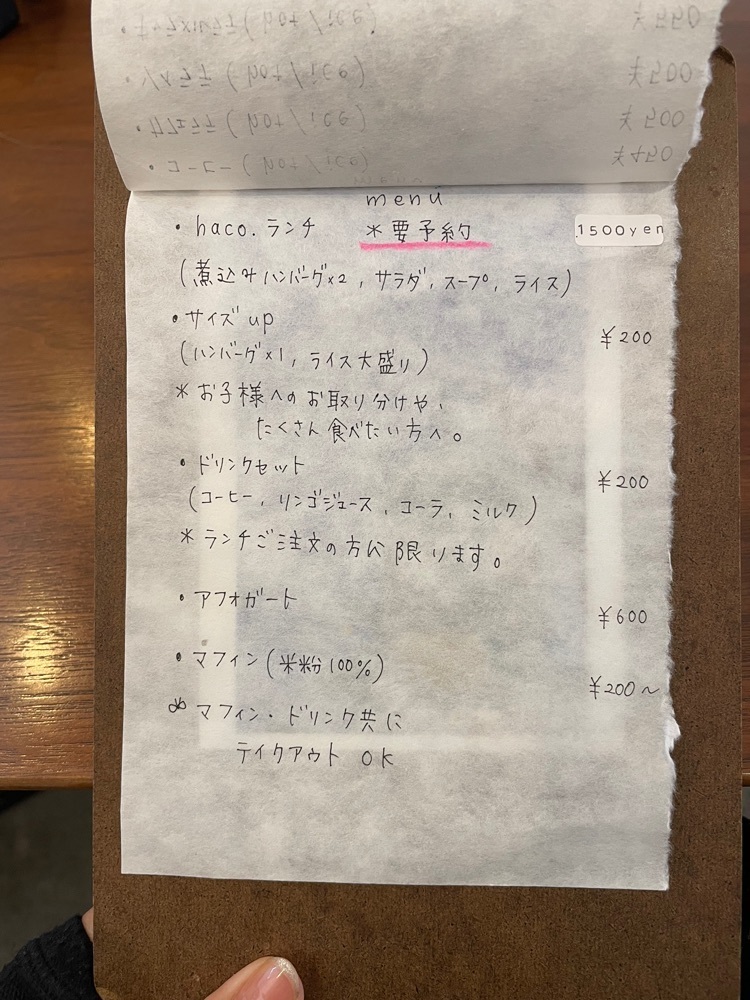 menu
・haco.ランチ ＊要予約 1500yen
(煮込みハンバーグ×2, サラダ, スープ, ライス)
・サイズup ¥200
(ハンバーグ×1, ライス大盛り)
＊お子様へのお取り分けや、
たくさん食べたい方へ。
・ドリンクセット ¥200
(コーヒー, リンゴジュース, コーラ, ミルク)
＊ランチご注文の方に限ります。
・アフォガート ¥600
・マフィン(米粉100%) ¥200〜
＊マフィン・ドリンク共に
テイクアウト OK